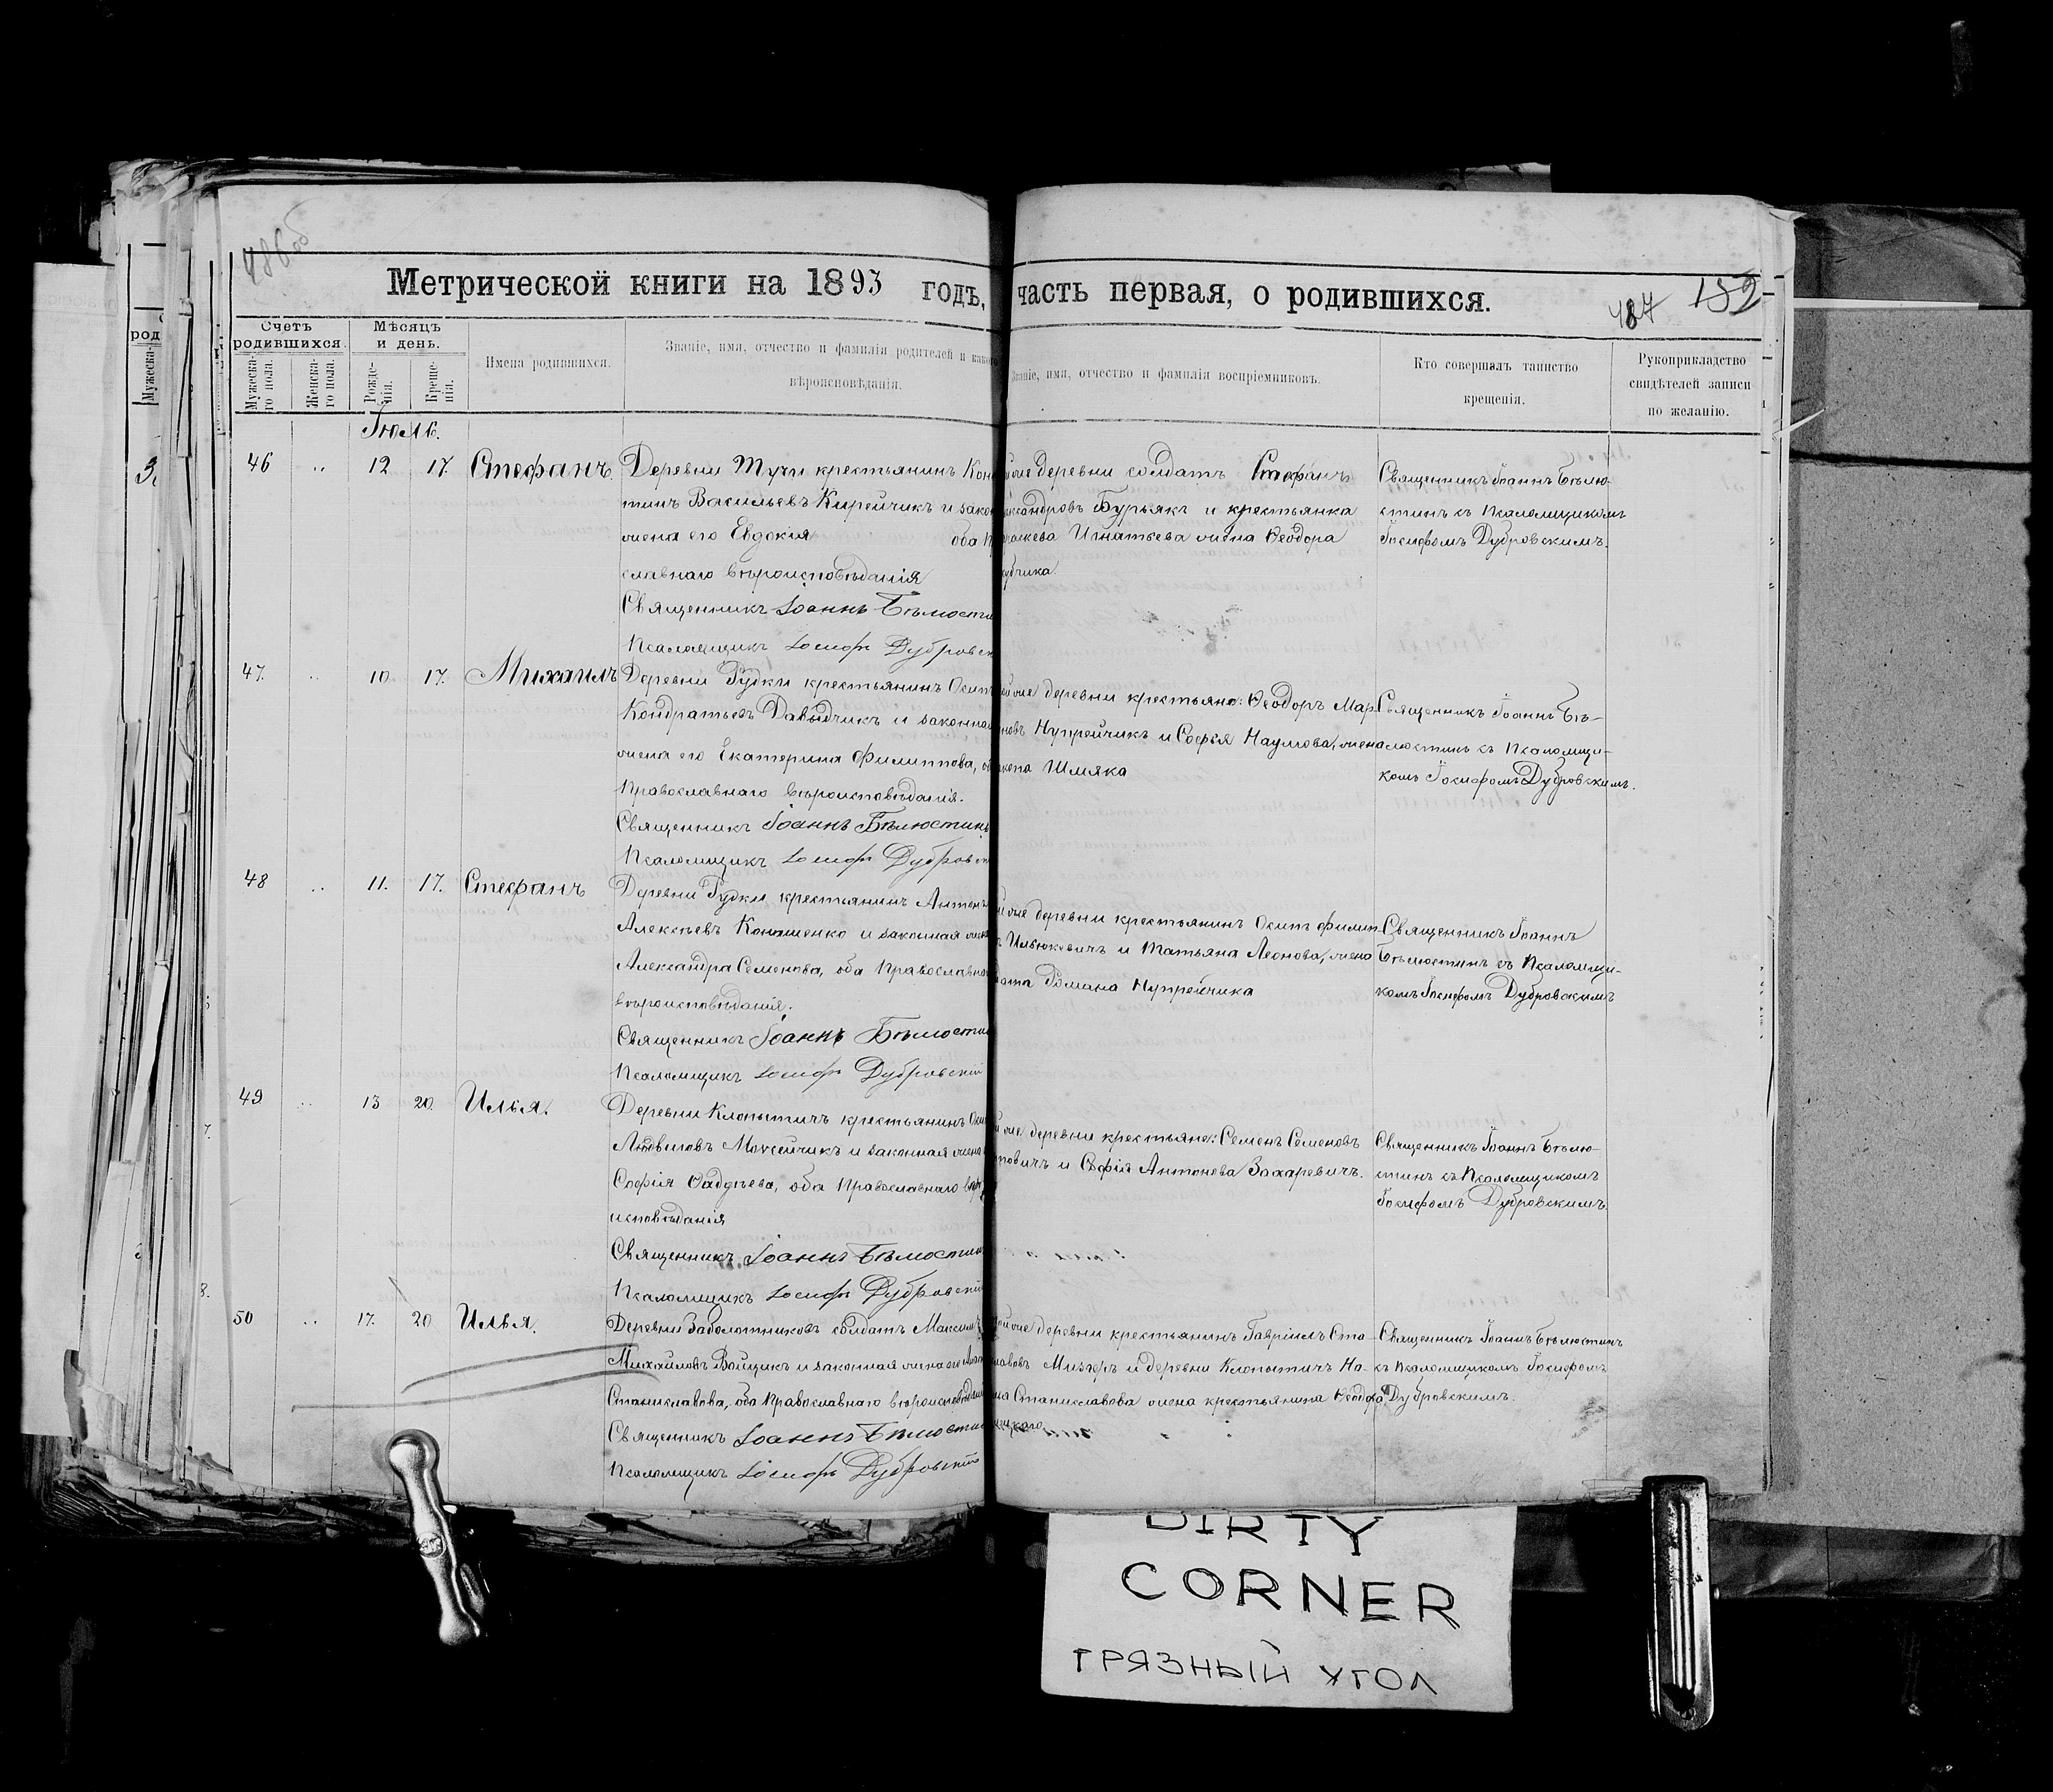 486об
Метрической книги на 1893 годъ, часть первая, о родившихся.
487 152
Счетъ родившихся.
Мѣсяцъ и день.
Мужеска-го пола.
Женска-го пола.
Рожде-нія.
Креще-нія.
Имена родившихся.
Званіе, имя, отчество и фамилія родителей и какого
вѣроисповѣданія.
Званіе, имя, отчество и фамилія воспріемниковъ.
Кто совершалъ таинство
крещенія.
Рукоприкладство
свидѣтелей записи
по желанію.
Іюль.
46 .. 12 17 Стефанъ.
Деревни Тучи крестьянинъ Кон
тинъ Васильевъ Кирейчикъ и закон
жена его Евдокія оба П
славнаго вѣроисповѣданія
Священникъ Іоаннъ Бѣлюсти
Псаломщикъ Іосифъ Дубровск
же деревни солдатъ Стефанъ
ександровъ Бурьякъ и крестьянка
Игнатьева жена Ѳеодора
Священникъ Іоаннъ Бѣлю-
стинъ съ Псаломщикомъ
Іосифомъ Дубровскимъ.
47. .. 10 17. Михаилъ
Деревни Рудки крестьянинъ Осип
Кондратьевъ Давыдчикъ и законная
жена его Екатерина Филиппова, об
Православнаго вѣроисповѣданія.
Священникъ Іоаннъ Бѣлюстинъ
Псаломщикъ Іосифъ Дубровск
же деревни крестьяне: Ѳеодоръ Мар
новъ Нупрейчикъ и Софья Наумова, жена
Шляка
Священникъ Іоаннъ Бѣ-
люстинъ съ Псаломщи-
комъ Іосифомъ Дубровскимъ.
48 .. 11. 17. Стефанъ
Деревни Рудки крестьянинъ Антонъ
Алексѣевъ Кононенко и законная жена
Александра Семенова, оба Православна
вѣроисповѣданія.
Священникъ Іоаннъ Бѣлюсти
Псаломщикъ Іосифъ Дубровскій
же деревни крестьянинъ Осипъ Филип
Ильюковичъ и Татьяна Леонова, жена
Романа Нупрейчика
Священникъ Іоаннъ
Бѣлюстинъ съ Псаломщи-
комъ Іосифомъ Дубровскимъ
49 .. 13 20 Илья.
Деревни Клопытичъ крестьянинъ
Людвиговъ Мокейчикъ и законная жена
Софія Ѳаддѣева, оба Православнаго вѣро
исповѣданія
Священникъ Іоаннъ Бѣлюстин
Псаломщикъ Іосифъ Дубровскій
же деревни крестьяне: Семенъ Семеновъ
и Софія Антонева Захаревичъ.
Священникъ Іоаннъ Бѣлю-
стинъ съ Псаломщикомъ
Іосифомъ Дубровскимъ.
50 .. 17. 20 Илья.
Деревни Заболотниковъ солдатъ Максимъ
Михайловъ Войщикъ и законная жена его
Станиславова, оба Православнаго вѣроисповѣдан
Священникъ Іоаннъ Бѣлюстин
Псаломщикъ Іосифъ Дубровскій
же деревни крестьянинъ Гавріилъ Ста-
лавовъ Мизгеръ и деревни Клопытичъ На-
Станиславова жена крестьянина Ѳеодора
Священникъ Іоаннъ Бѣлюстинъ
съ Псаломщикомъ Іосифомъ
Дубровскимъ.
DIRTY
CORNER
ГРЯЗНЫЙ УГОЛ